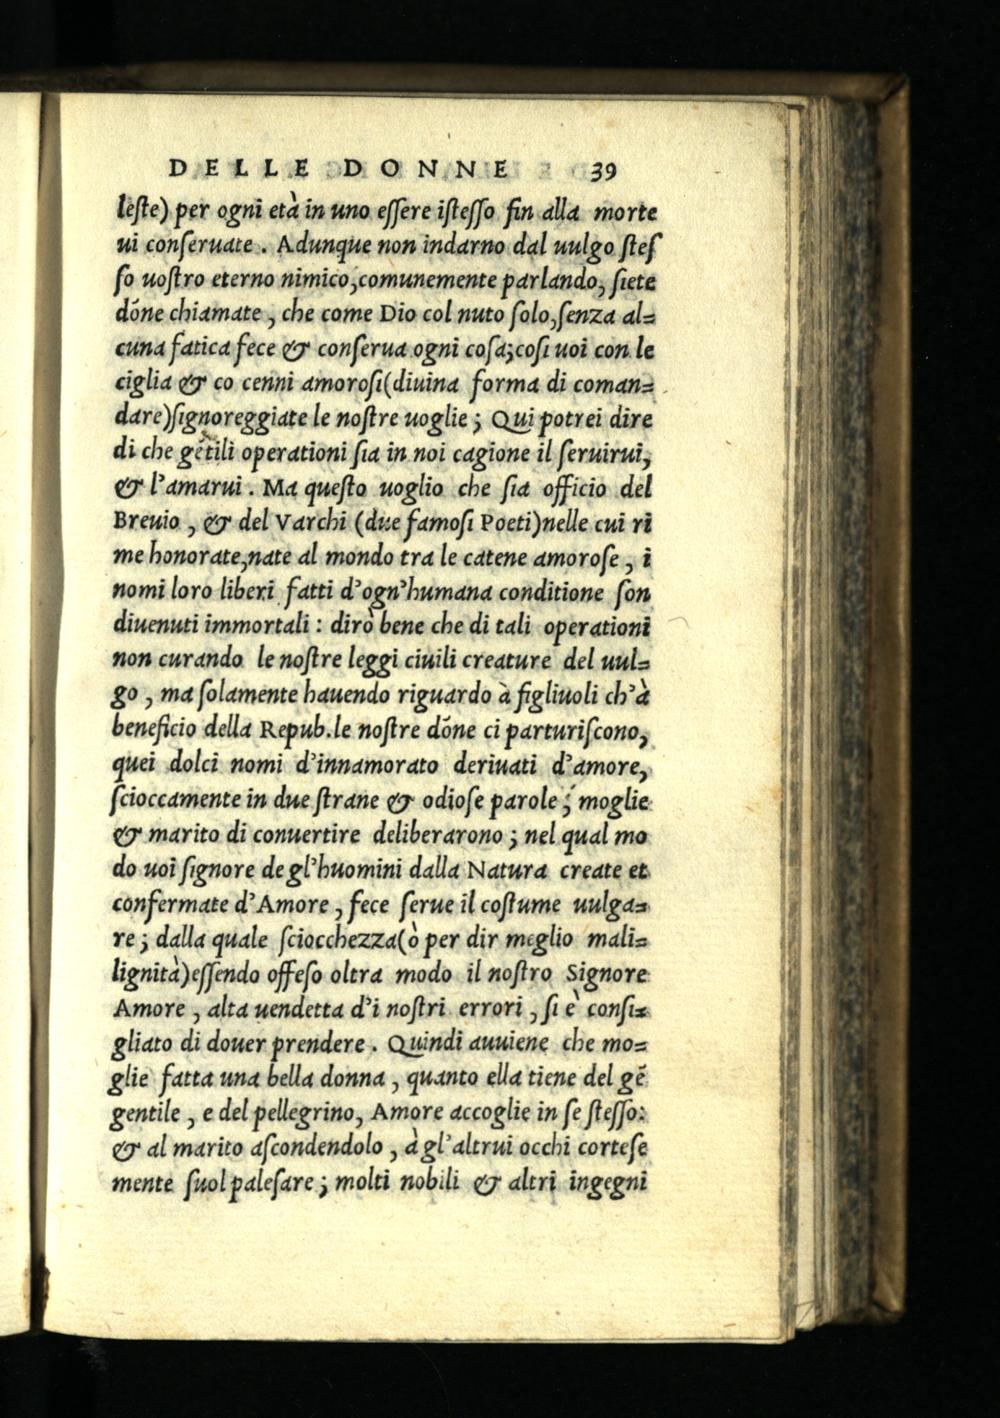 DELLE DONNE 39
leſte) per ogni età in uno eſſere iſteſſo fin alla morte
ui conſeruate. Adunque non indarno dal uulgo ſteſ
ſo uoſtro eterno nimico, comunemente parlando, ſiete
dõne chiamate, che come Dio col nuto ſolo, ſenza al=
cuna fatica fece & conſerua ogni coſa; coſi uoi con le
ciglia & co cenni amoroſi (diuina forma di coman=
dare) ſignoreggiate le noſtre uoglie; Qui potrei dire
di che gẽtili operationi ſia in noi cagione il ſeruirui,
& l'amarui. Ma queſto uoglio che ſia officio del
Breuio, & del Varchi (due famoſi Poeti) nelle cui ri
me honorate, nate al mondo tra le catene amoroſe, i
nomi loro liberi fatti d'ogn'humana conditione ſon
diuenuti immortali: dirò bene che di tali operationi
non curando le noſtre leggi ciuili creature del uul=
go, ma ſolamente hauendo riguardo à figliuoli ch'à
beneficio della Repub. le noſtre dõne ci parturiſcono,
quei dolci nomi d'innamorato deriuati d'amore,
ſcioccamente in due ſtrane & odioſe parole; moglie
& marito di conuertire deliberarono; nel qual mo
do uoi ſignore de gl'huomini dalla Natura create et
confermate d'Amore, fece ſerue il coſtume uulga=
re; dalla quale ſciocchezza (ò per dir meglio mali=
lignità) eſſendo offeſo oltra modo il noſtro Signore
Amore, alta uendetta d'i noſtri errori, ſi è conſi=
gliato di douer prendere. Quindi auuiene che mo=
glie fatta una bella donna, quanto ella tiene del gẽ
gentile, e del pellegrino, Amore accoglie in ſe ſteſſo:
& al marito aſcondendolo, à gl'altrui occhi corteſe
mente ſuol paleſare; molti nobili & altri ingegni